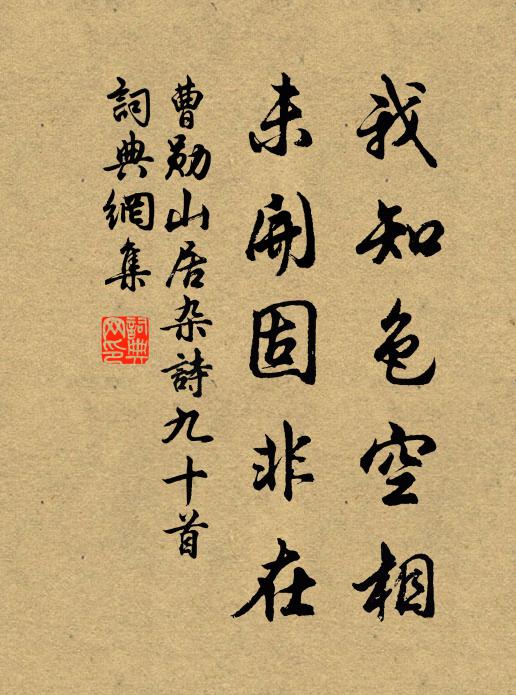 我知色空相
未開固非在
曹勛山居杂詩九十首
詞典網集
詞典
网印